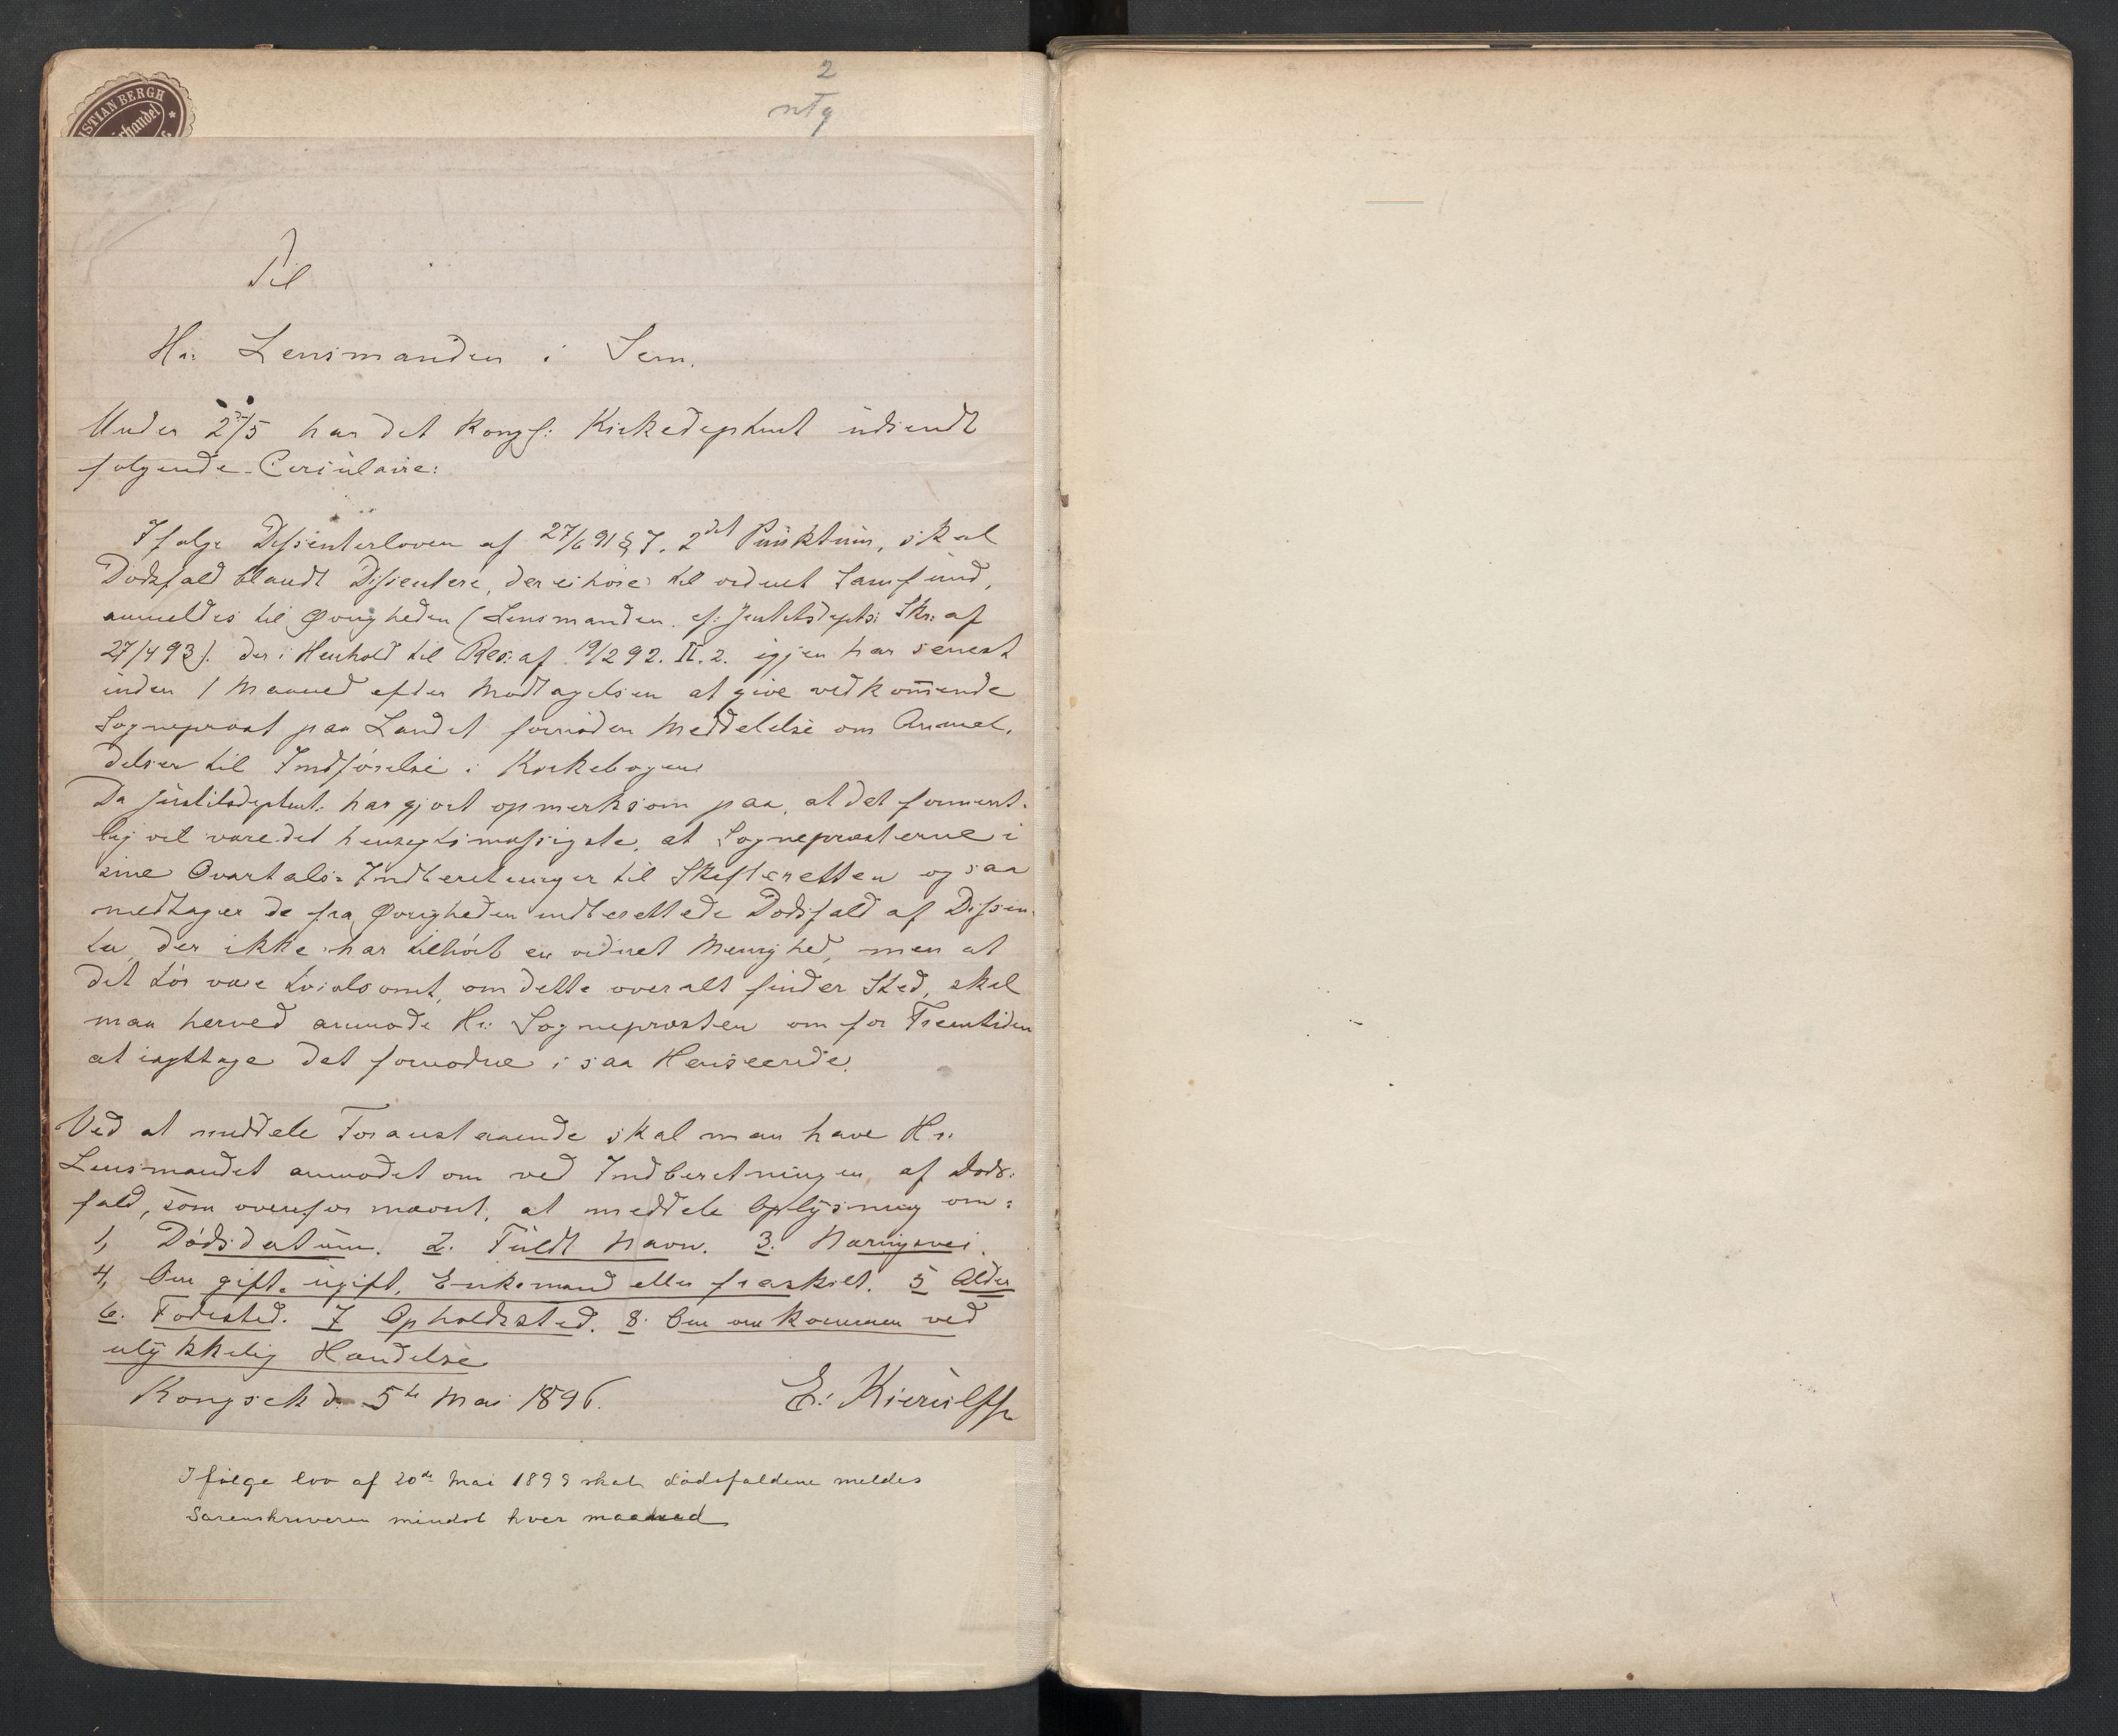 STIAN BERGH
handel
2
Til
Hr. Lensmanden i Sem.
Under 2/5 har det kongl: Kirkedeptmt udsendt
følgende Cirkulære:
Ifølge Dissenterloven af 27/6 91 § 7. 2det Punktum, skal
Dødsfald blandt Dissentere, der ei hører til ordnet Samfund,
anmeldes til Øvrigheden (Lensmanden cf: Justitsdepts: Skr: af
27/4 93). der i Henhold til Res: af 19/2 92. II. 2. igjen har senest
inden 1 Maaned efter Modtagelsen at give vedkommende
Sogneprest paa Landet fornøden Meddelelse om Anmel-
delser til Indførelse i Kirkebogen
Da Justitsdeptmt. har gjort opmerksom paa, at det forment-
lig vil være det hensigtsmæssigste, at Sognepræsterne i
sine Qvartals-Indberetninger til Skifteretten ogsaa
medtager de fra Øvrigheden indberettede Dødsfald af Dissen-
ter, der ikke har tilhørt en ordnet Menighed, men at
det tør være tvivlsomt, om dette overalt finder Sted, skal
man herved anmode Hr: Sognepræsten om for Fremtiden
at iagttage det fornødne i saa Henseende.
Ved at meddele Foranstaaende skal man have Hr:
Lensmandet anmodet om ved Indberetningen af Døds-
fald, som ovenfor nævnt, at meddele Oplysning om:
1, Dødsdatum. 2. Fuldt Navn. 3. Næringsvei.
4, Om gift, ugift, Enkemand eller fraskilt. 5 Alder
6. Fødested. 7 Opholdssted. 8. Om omkommen ved
ulykkelig Hændelse
5te Mai 1896. E: Kierulff
Ifølge lov af 20de Mai 1899 skal dødsfaldene meldes
Sorenskriveren mindst hver maaned